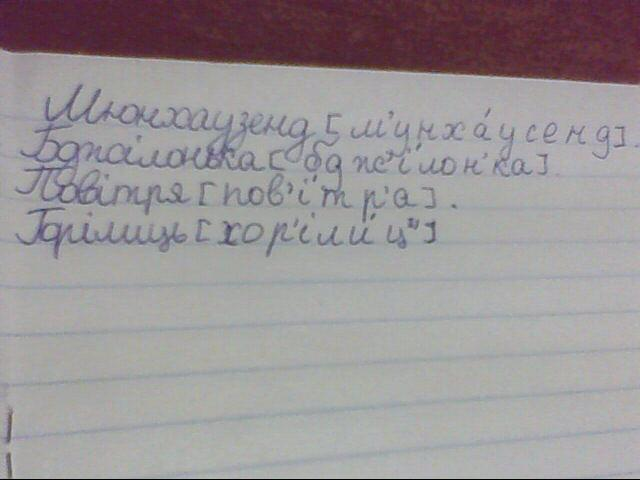 Мюнхаузенд [м'унха́усенд].
Бджілонька [бдж'ілон'ка].
Повітря [пов'ітр'а].
Горілиць [хор'іли́ц"]